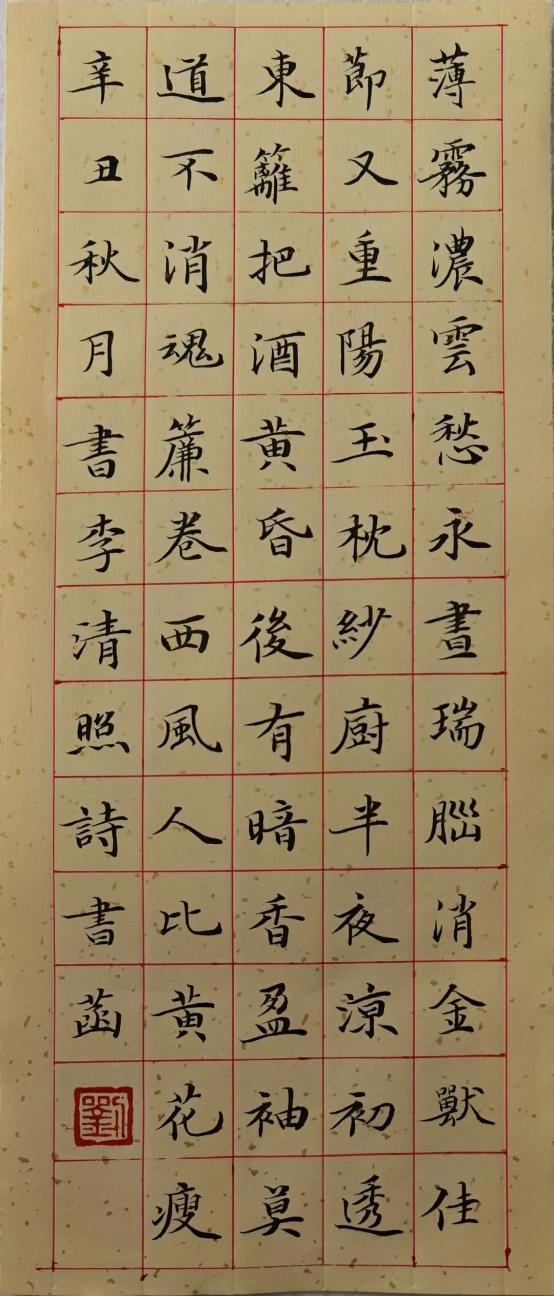 薄霧濃雲愁永晝瑞腦消金獸佳
節又重陽玉枕紗廚半夜涼初透
東籬把酒黃昏後有暗香盈袖莫
道不消魂簾卷西風人比黃花瘦
辛丑秋月書李清照詩書菡
劉